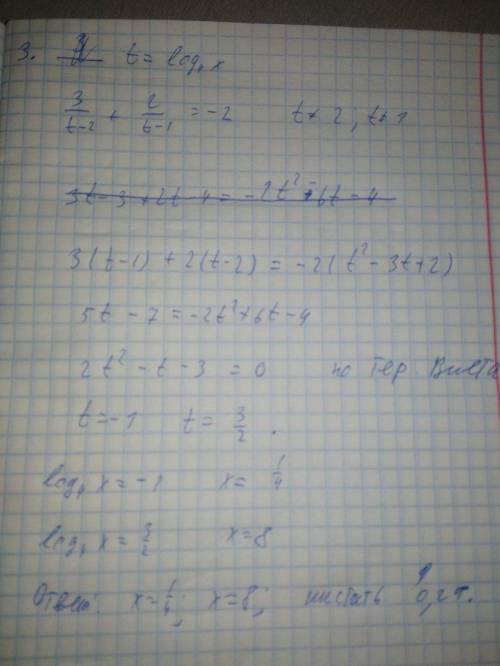 3. t = log₄ x
3/(t-2) + 2/(t-1) = -2 t ≠ 2; t ≠ 1
3t - 3 + 2t - 4 = -2t² + 6t - 4
3(t-1) + 2(t-2) = -2(t² - 3t + 2)
5t - 7 = -2t² + 6t - 4
2t² - t - 3 = 0 по тер. Виета
t = -1 t = 3/2.
log₄ x = -1 x = 1/4
log₄ x = 3/2 x = 8
Ответ: x = 1/4; x = 8;